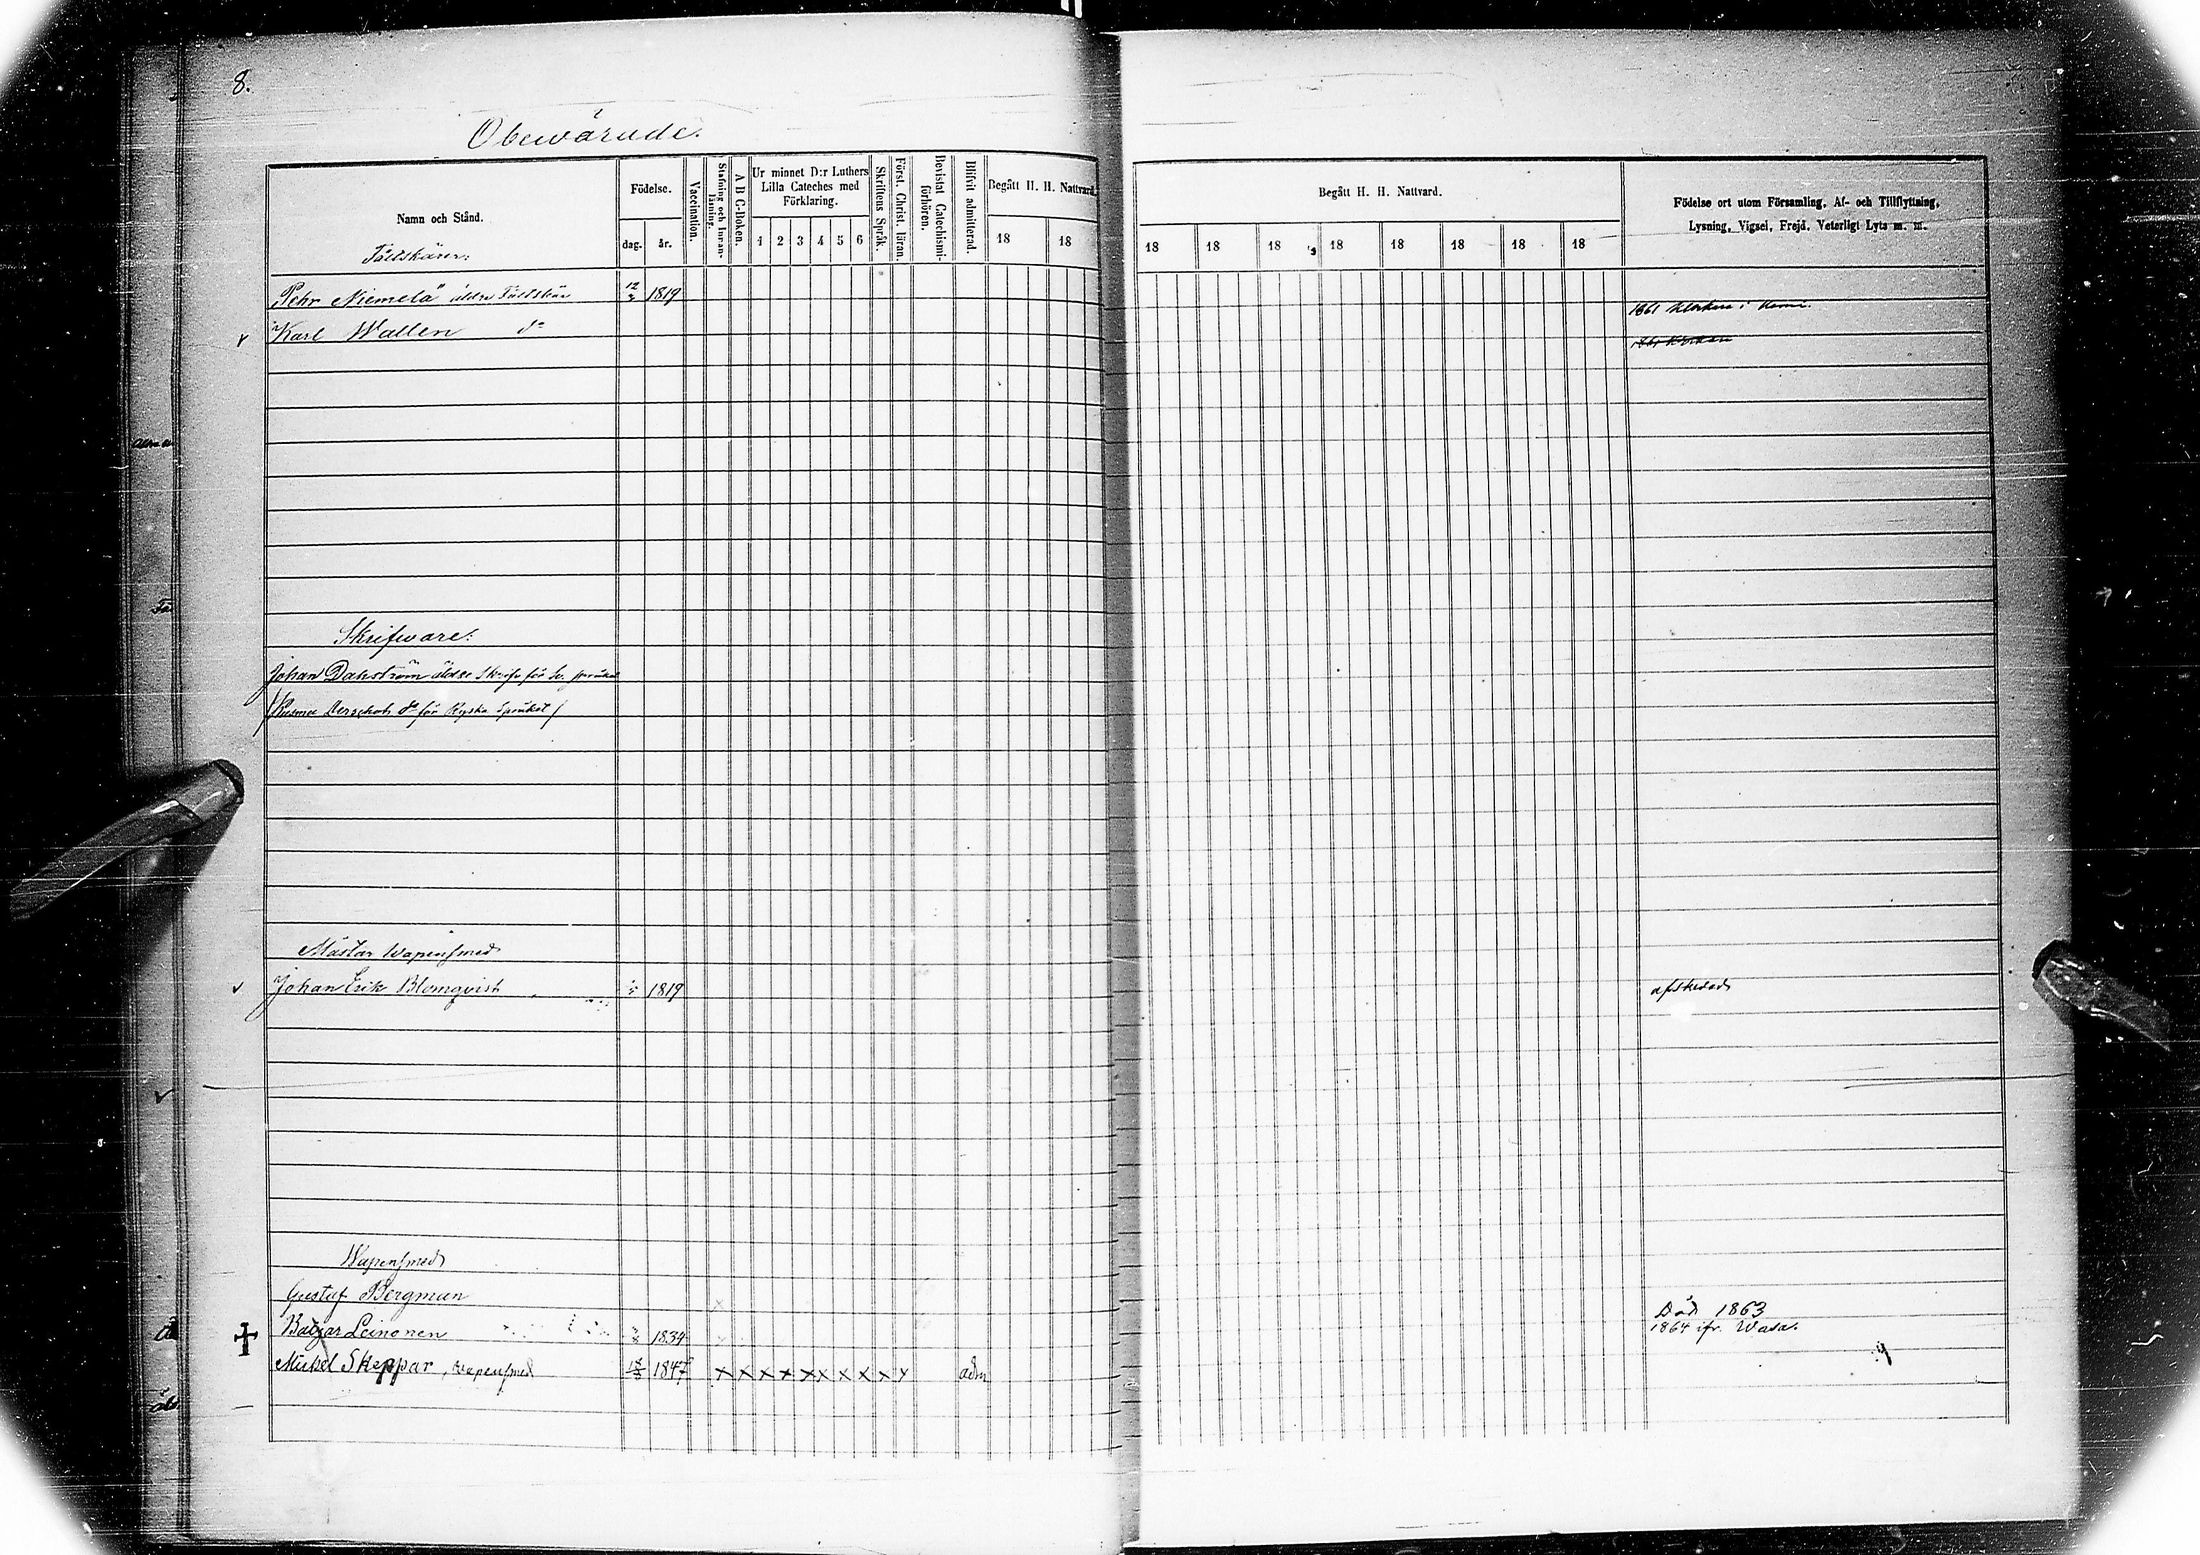 8.
Obewärade.
Namn och Stånd.
Födelse.
dag. år.
Vaccination.
Stafning och Innanläsning.
A B C-Boken.
Ur minnet D:r Luthers Lilla Cateches med Förklaring.
1 2 3 4 5 6
Skriftens Språk.
Först. Christ. läran.
Bevistat Catechismiförhören.
Blifvit admitterad.
Begått H. H. Nattvard.
18 18
Begått H. H. Nattvard.
18 18 18 18 18 18 18 18
Födelse ort utom Församling, Af- och Tillflyttning,
Lysning, Vigsel, Frejd, Veterligt Lyts m. m.
Fältskärer:
Pehr Niemelä äldre Fältskär 1819 1861 Klockare i Kemi.
Karl Wallen do
Skrifware:
Johan Dahström äldre Skrifv för Sv. språket
do för Ryska Språket
Mästar Wapensmed
Johan Erik Blomqvist 1819 afskedad
Wapensmed
Gustaf Bergman Död 1863
Batzar Leinonen 1834 1864 ifr. Wasa.
Mickel Skeppar, wapensmed 1847 x x x x x x x x x x adm